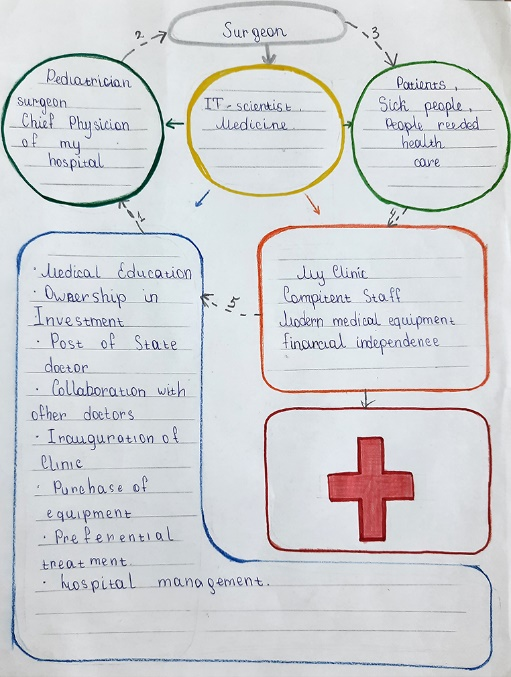 Surgeon
2
3
Pediatrician
surgeon
Chief Physician
of my
hospital
IT-scientist
Medicine
Patients,
Sick people,
People needed
health
care
1
4
· Medical Education
· Ownership in
Investment
· Post of State
doctor
· Collaboration with
other doctors
· Inauguration of
Clinic
· Purchase of
equipment
· Preferential
treatment.
· hospital management.
My Clinic
Compitent Staff
Modern medical equipment
financial independence
5